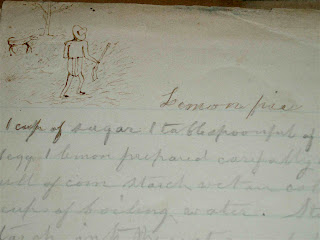 Lemon pie
1 cup of sugar 1 tablespoonful of
1 egg 1 lemon prepared carefully
full of corn starch wet in col
cups of boiling water. St